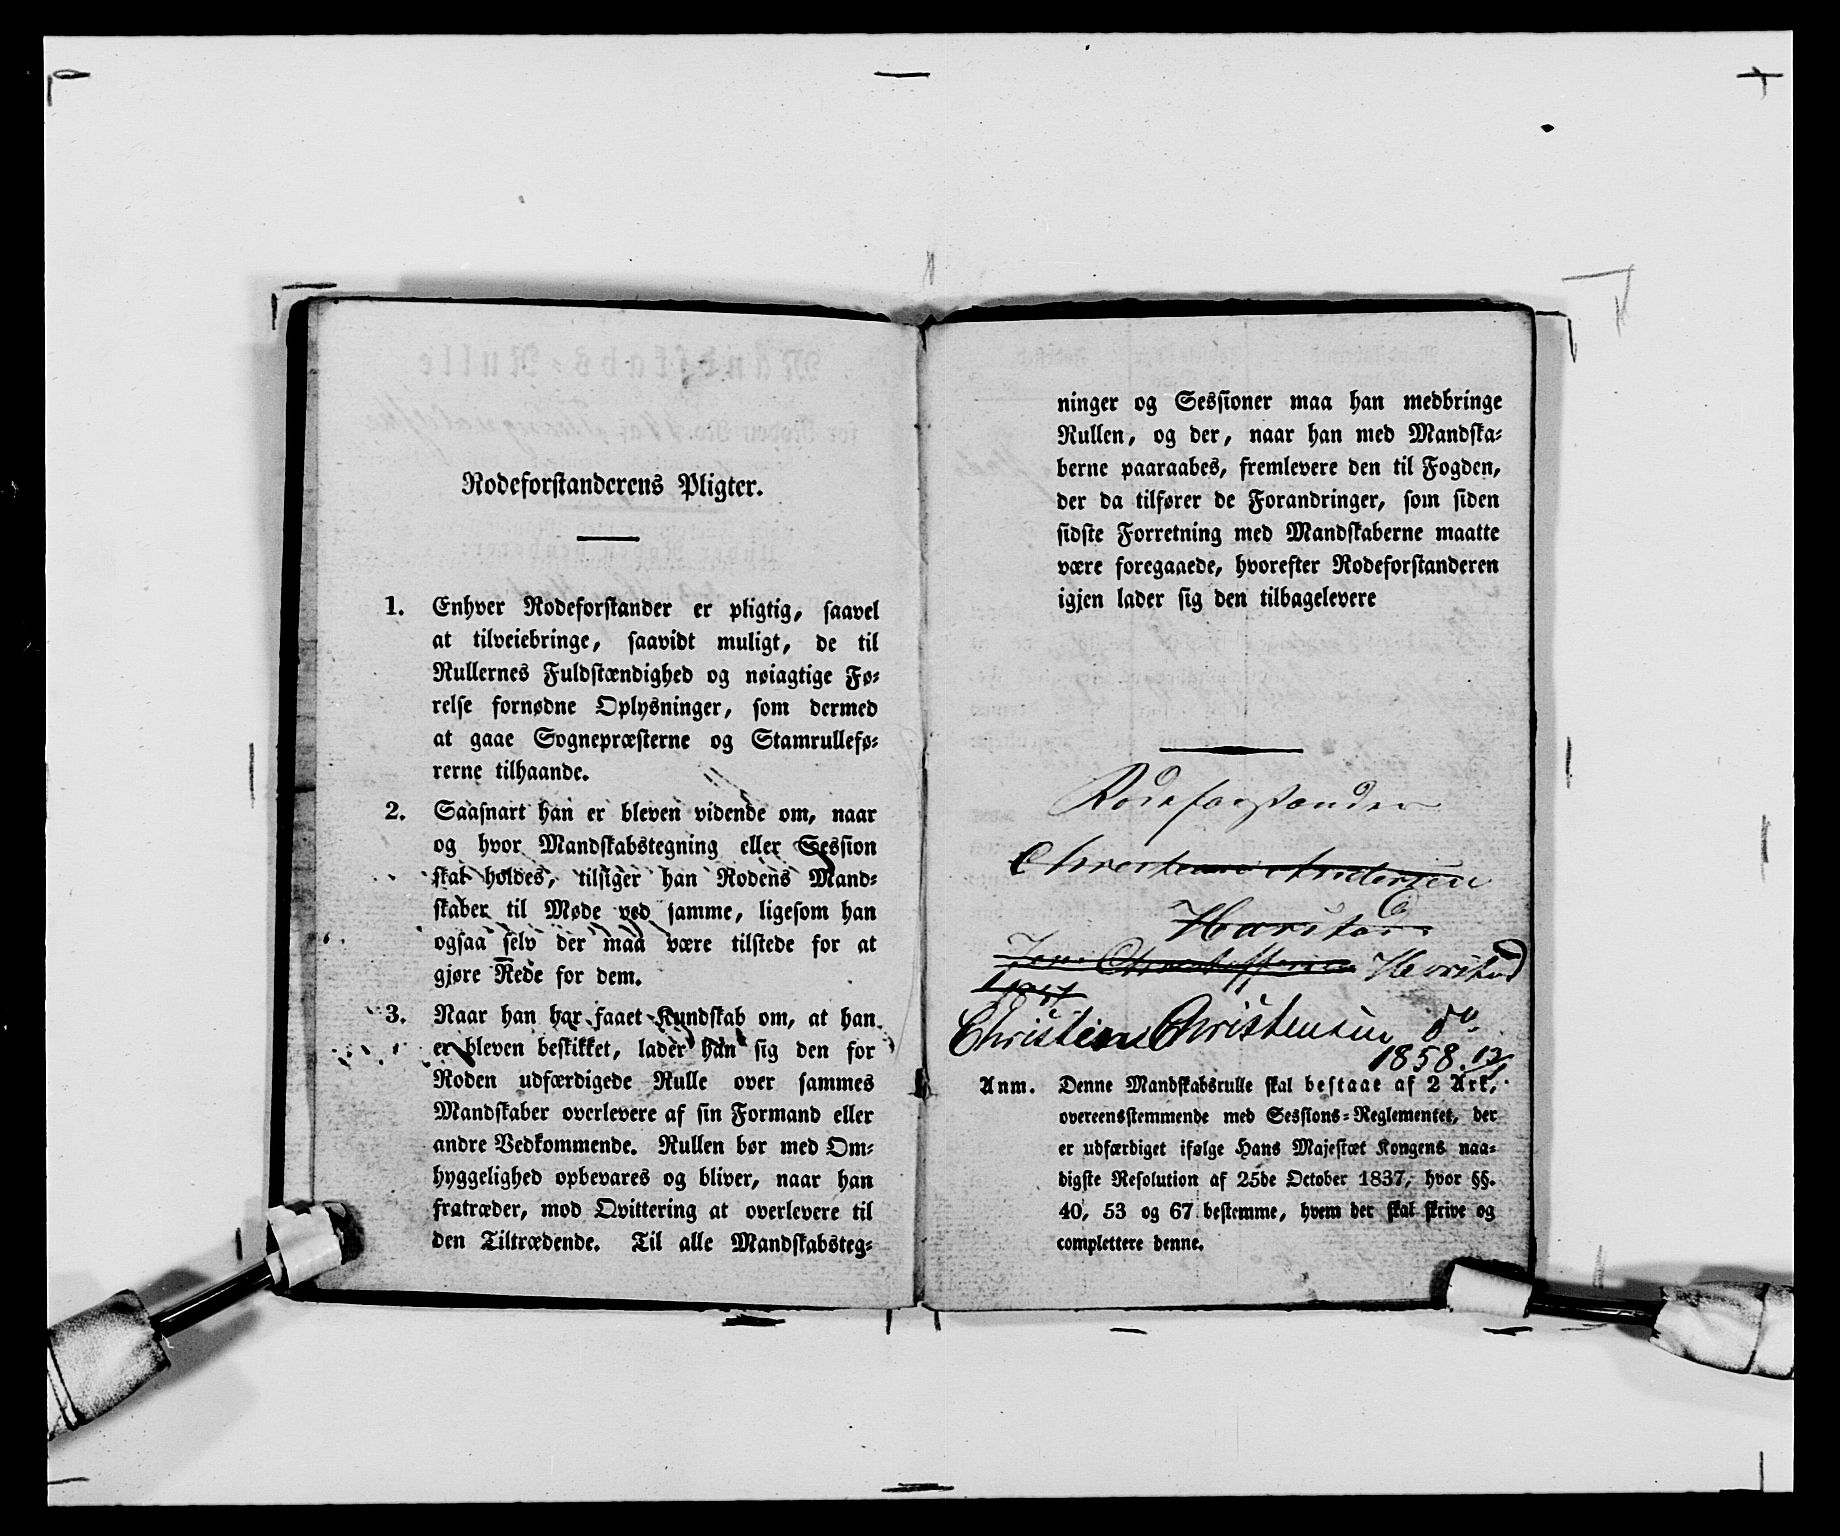 Rodeforstanderens Pligter.
1. Enhver Rodeforstander er pligtig, saavel
at tilveiebringe, saavidt muligt, de til
Rullernes Fuldstændighed og nøiagtige Fø-
relse fornødne Oplysninger, som dermed
at gaae Sognepræsterne og Stamrullefø-
rerne tilhaande.
2. Saasnart han er bleven vidende om, naar
og hvor Mandskabstegning eller Session
skal holdes, tilsiger han Rodens Mand-
skaber til Møde ved samme, ligesom han
ogsaa selv der maa være tilstede for at
gjøre Rede for dem.
3. Naar han har faaet Kundskab om, at han
er bleven beskikket, lader han sig den for
Roden udfærdigede Rulle over sammes
Mandskaber overlevere af sin Formand eller
andre Vedkommende. Rullen bør med Om-
hyggelighed opbevares og bliver, naar han
fratræder, mod Qvittering at overlevere til
den Tiltrædende. Til alle Mandskabsteg-
ninger og Sessioner maa han medbringe
Rullen, og der, naar han med Mandska-
berne paaraabes, fremlevere den til Fogden,
der da tilfører de Forandringer, som siden
sidste Forretning med Mandskaberne maatte
være foregaaede, hvorefter Rodeforstanderen
igjen lader sig den tilbagelevere
Rodeforstander
Andersen
Harstad
Jens Christoffersen Harstad
Christian Christensen do
1858. 12/1
Anm. Denne Mandskabsrulle skal bestaae af 2 Ark,
overeensstemmende med Sessions-Reglementet, der
er udfærdiget ifølge Hans Majestæt Kongens naa-
digste Resolution af 25de October 1837, hvor §§.
40, 53 og 67 bestemme, hvem der skal skrive og
complettere denne.